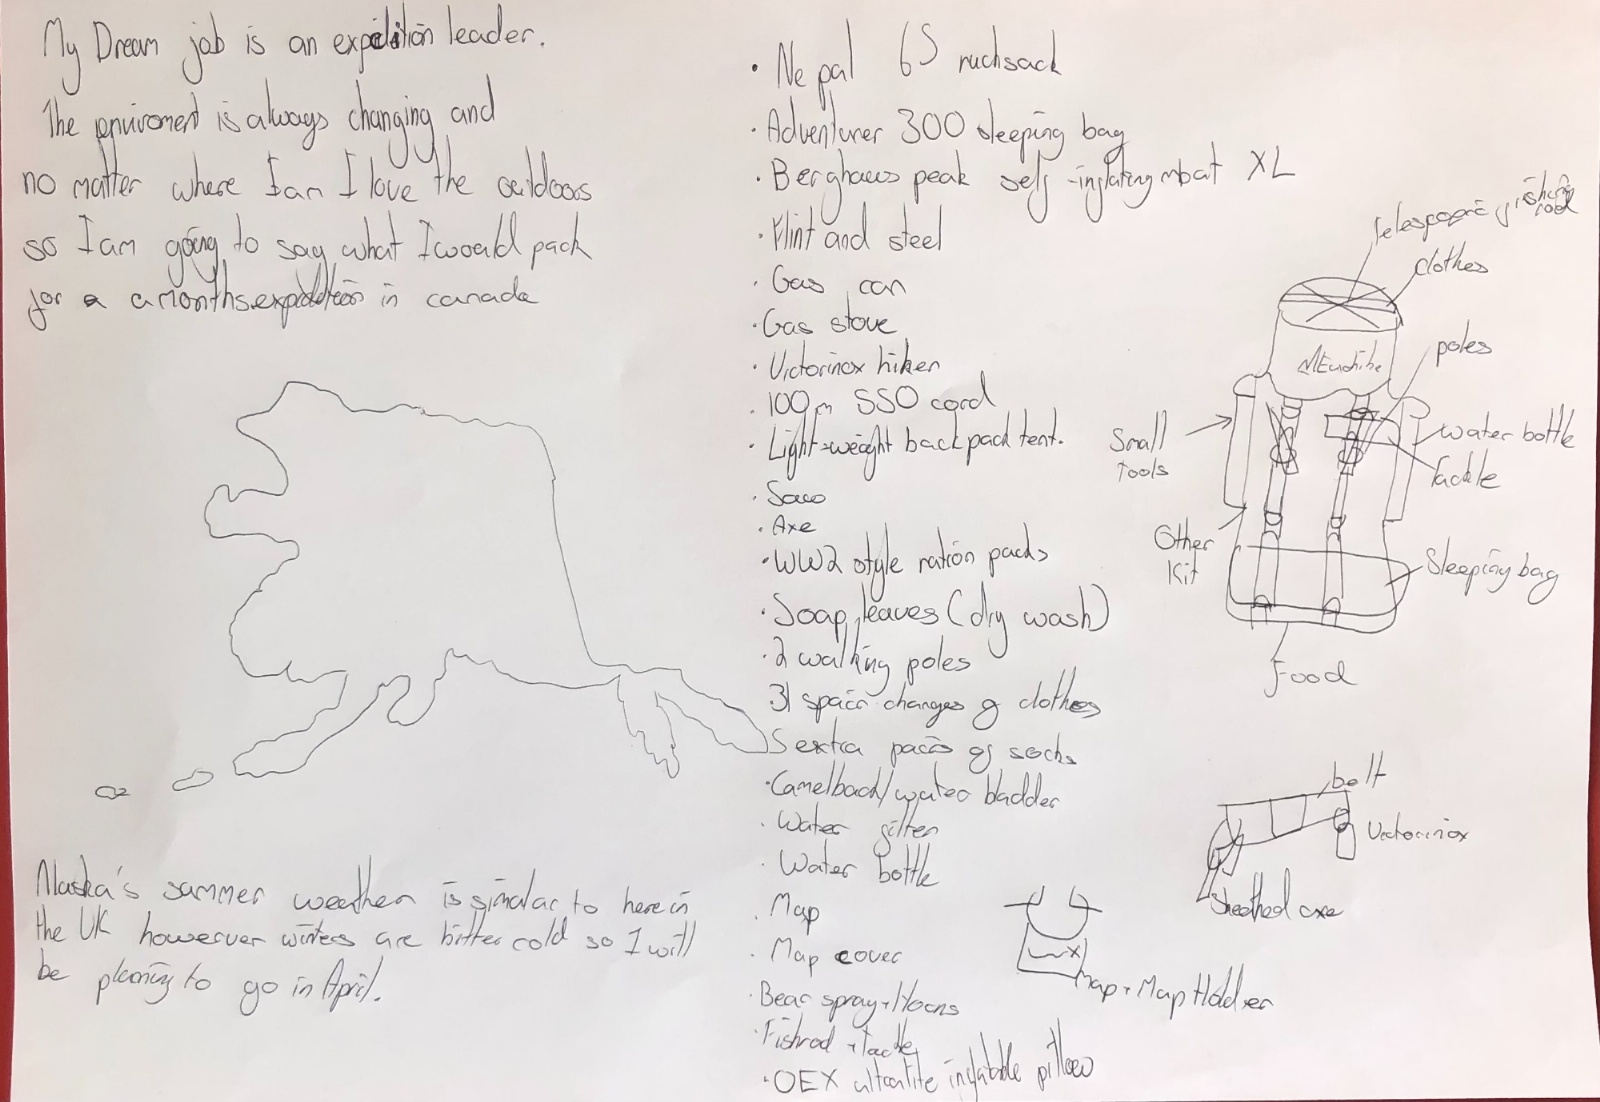 My Dream job is an expedition leader.
The enviroment is always changing and
no matter where I am I love the outdoors
so I am going to say what I would pack
for a a months expedition in canada
Alaska's summer weather is similar to here in
the UK howerver winters are bitter cold so I will
be planing to go in April.
• Nepal 65 rucksack
• Adventurer 300 sleeping bag
• Berghaus peak self-inflating mat XL
• Flint and steel
• Gas can
• Gas stove
• Victorinox hiker
• 100m 550 cord
• Light-weight backpack tent.
• Saw
• Axe
• WW2 style ration packs
• Soap leaves (dry wash)
• 2 walking poles
3 spair changes of clothes
5 extra pairs of socks
• Camelback/water bladder
• Water filter
• Water bottle
• Map
• Map cover
• Bear spray + Horns
• Fishrod + tackle
• OEX ultralite inflatable pillow
telescopic fishing
rod
clothes
poles
Small
tools
water bottle
Tackle
Other
Kit
Sleeping bag
Food
belt
Victorinox
Sheathed axe
Map + Map Holder